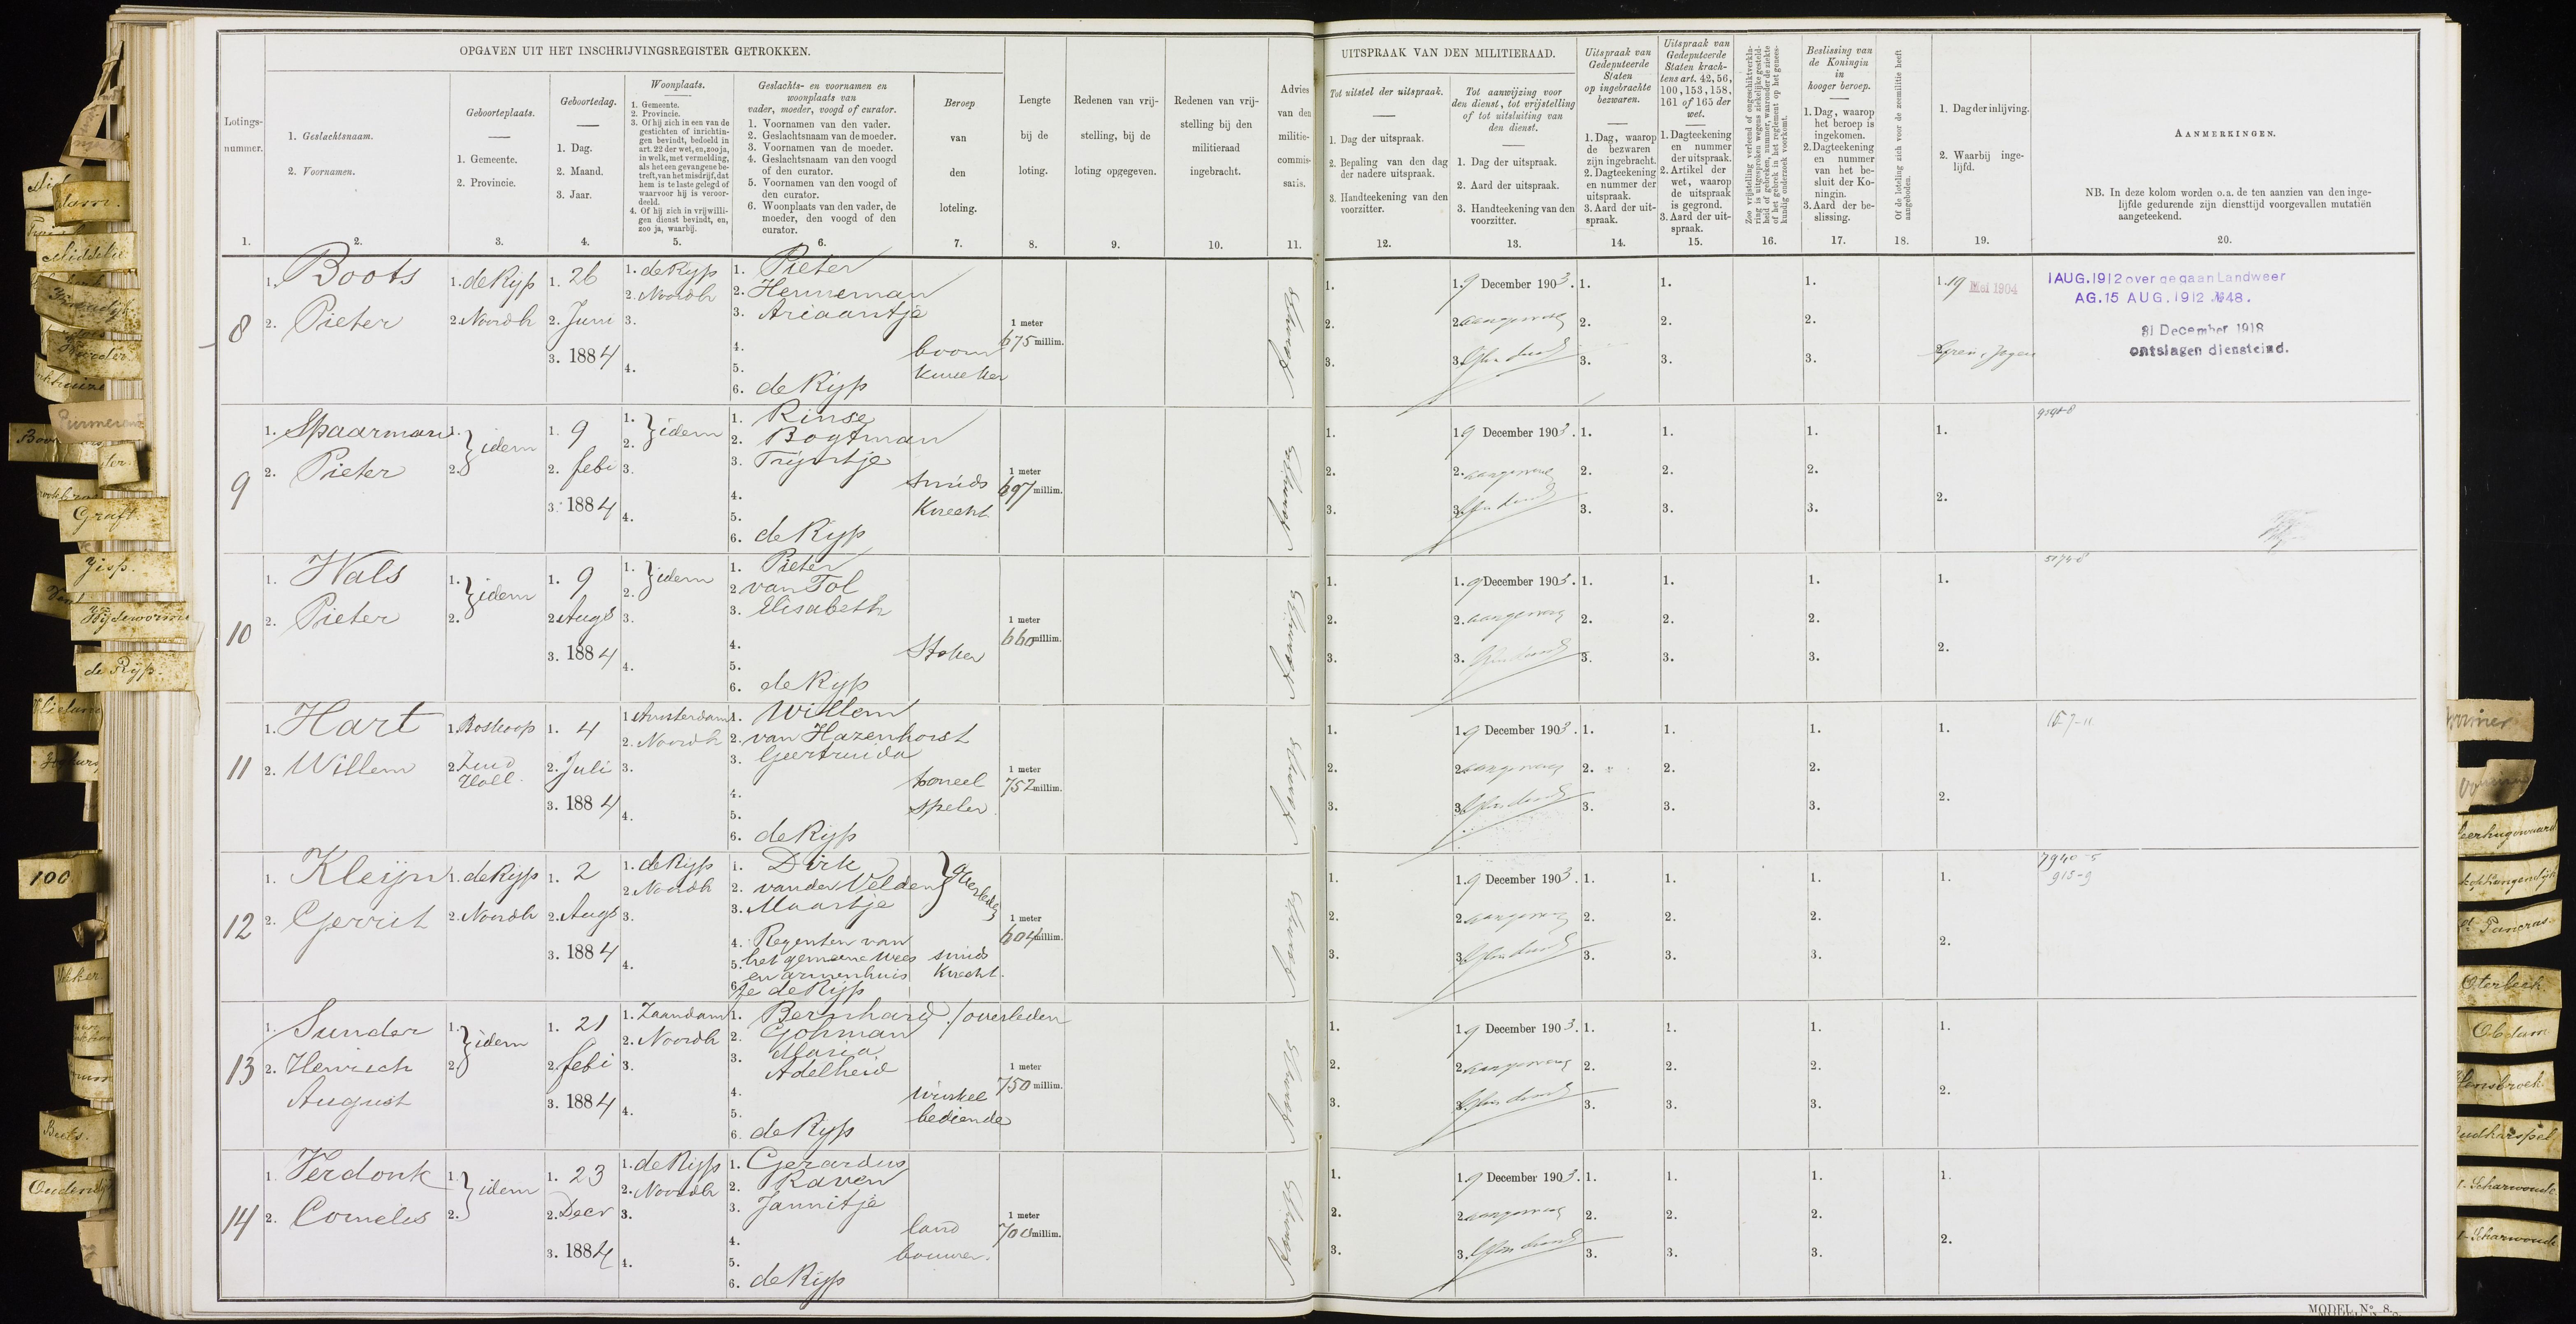 OPGAVEN UIT HET INSCHRIJVINGSREGISTER GETROKKEN.
Lotings-
nummer.
1.
1. Geslachtsnaam.
2. Voornamen.
2.
Geboorteplaats.
1. Gemeente.
2. Provincie.
3.
Geboortedag.
1. Dag.
2. Maand.
3. Jaar.
4.
Woonplaats.
1. Gemeente.
2. Provincie.
3. Of hij zich in een van de
gestichten of inrichtin-
gen bevindt, bedoeld in
art. 22 der wet, en, zoo ja,
in welk, met vermelding,
als het een gevangene be-
treft, van het misdrijf, dat
hem is te laste gelegd of
waarvoor hij is veroor-
deeld.
4. Of hij zich in vrijwilli-
gen dienst bevindt, en,
zoo ja, waarbij.
5.
Geslachts- en voornamen en
woonplaats van
vader, moeder, voogd of curator.
1. Voornamen van den vader.
2. Geslachtsnaam van de moeder.
3. Voornamen van de moeder.
4. Geslachtsnaam van den voogd
of den curator.
5. Voornamen van den voogd of
den curator.
6. Woonplaats van den vader, de
moeder, den voogd of den
curator.
6.
Beroep
van
den
loteling.
7.
Lengte
bij de
loting.
8.
Redenen van vrij-
stelling, bij de
loting opgegeven.
9.
Redenen van vrij-
stelling bij den
militieraad
ingebracht.
10.
Advies
van den
militie-
commis-
saris.
11.
UITSPRAAK VAN DEN MILITIERAAD.
Tot uitstel der uitspraak.
1. Dag der uitspraak.
2. Bepaling van den dag
der nadere uitspraak.
3. Handteekening van den
voorzitter.
12.
Tot aanwijzing voor
den dienst, tot vrijstelling
of tot uitsluiting van
den dienst.
1. Dag der uitspraak.
2. Aard der uitspraak.
3. Handteekening van den
voorzitter.
13.
Uitspraak van
Gedeputeerde
Staten
op ingebrachte
bezwaren.
1. Dag, waarop
de bezwaren
zijn ingebracht.
2. Dagteekening
en nummer der
uitspraak.
3. Aard der uit-
spraak.
14.
Uitspraak van
Gedeputeerde
Staten krach-
tens art. 42, 56,
100, 153, 158,
161 of 165 der
wet.
1. Dagteekening
en nummer
der uitspraak.
2. Artikel der
wet, waarop
de uitspraak
is gegrond.
3. Aard der uit-
spraak.
15.
Zoo vrijstelling verleend of ongeschiktverkla-
ring is uitgesproken wegens ziekelijke gesteld-
heid of gebreken, nummer, waaronder de ziekte
of het gebrek in het reglement op het genees-
kundig onderzoek voorkomt.
16.
Beslissing van
de Koningin
in
hooger beroep.
1. Dag, waarop
het beroep is
ingekomen.
2. Dagteekening
en nummer
van het be-
sluit der Ko-
ningin.
3. Aard der be-
slissing.
17.
Of de loteling zich voor de zeemilitie heeft
aangeboden.
18.
1. Dag der inlijving.
2. Waarbij inge-
lijfd.
19.
AANMERKINGEN.
NB. In deze kolom worden o.a. de ten aanzien van den inge-
lijfde gedurende zijn diensttijd voorgevallen mutatiën
aangeteekend.
20.
8
1. Boots
2. Pieter
1. de Rijp
2. Noordh
1. 26
2. Juni
3. 1884
1. de Rijp
2. Noordh
3.
4.
1. Pieter
2. Henneman
3. Ariaantje
4.
5.
6. de Rijp
boom
kweeker
1 meter
675 millim.
1.
2.
3.
1. 9 December 1903.
2. aangewezen
3.
1.
2.
3.
1.
2.
3.
1.
2.
3.
1. 19 Mei 1904
2. Gren. & Jagers
1 AUG. 1912 overgegaan Landweer
AG. 15 AUG. 1912 № 48.
31 December 1918
ontslagen diensteind.
9
1. Spaarman
2. Pieter
1.
2. } idem
1. 9
2. febr
3. 1884
1.
2. } idem
3.
4.
1. Rinse
2. Bogtman
3. Trijntje
4.
5.
6. de Rijp
smids
knecht
1 meter
697 millim.
1.
2.
3.
1. 9 December 1903.
2. aangewezen
3.
1.
2.
3.
1.
2.
3.
1.
2.
3.
1.
2.
10
1. Wals
2. Pieter
1.
2. } idem
1. 9
2. Augs
3. 1884
1.
2. } idem
3.
4.
1. Pieter
2. van Tol
3. Elisabeth
4.
5.
6. de Rijp
Stoker
1 meter
660 millim.
1.
2.
3.
1. 9 December 1903.
2. aangewezen
3.
1.
2.
3.
1.
2.
3.
1.
2.
3.
1.
2.
5174-8
11
1. Hart
2. Willem
1. Boskoop
2. Zuid
Holl.
1. 4
2. Juli
3. 1884
1. Amsterdam
2. Noordh
3.
4.
1. Willem
2. van Hazenhorst
3. Geertruida
4.
5.
6. de Rijp
tooneel
speler
1 meter
752 millim.
1.
2.
3.
1. 9 December 1903.
2. aangewezen
3.
1.
2.
3.
1.
2.
3.
1.
2.
3.
1.
2.
12
1. Kleijn
2. Gerrit
1. de Rijp
2. Noordh
1. 2
2. Augs
3. 1884
1. de Rijp
2. Noordh
3.
4.
1. Dirk
2. van der Velden
3. Maartje
} overleden
4. Regenten van
5. het gemeene Wees
en armenhuis
6. te de Rijp
smids
knecht.
1 meter
604 millim.
1.
2.
3.
1. 9 December 1903.
2. aangewezen
3.
1.
2.
3.
1.
2.
3.
1.
2.
3.
1.
2.
7940-5
915-9
13
1. Sunder
2. Heinrich
August
1.
2. } idem
1. 21
2. febr
3. 1884
1. Zaandam
2. Noordh
3.
4.
1. Bernhard / overleden
2. Gohman
3. Maria
Adelheid
4.
5.
6. de Rijp
winkel
bediende
1 meter
750 millim.
1.
2.
3.
1. 9 December 1903.
2. aangewezen
3.
1.
2.
3.
1.
2.
3.
1.
2.
3.
1.
2.
14
1. Verdonk
2. Cornelis
1.
2. } idem
1. 23
2. Decr
3. 1884
1. de Rijp
2. Noordh
3.
4.
1. Gerardus
2. Raven
3. Jannitje
4.
5.
6. de Rijp
land
bouwer.
1 meter
700 millim.
1.
2.
3.
1. 9 December 1903.
2. aangewezen
3.
1.
2.
3.
1.
2.
3.
1.
2.
3.
1.
2.
MODEL N°. 8.
Middelie
Purmerend
Graft.
Jisp.
Wijdewormer
de Rijp.
100
Beets.
Heerhugowaard
St. Pancras
Oterleek
Obdam
Hensbroek
Oudkarspel